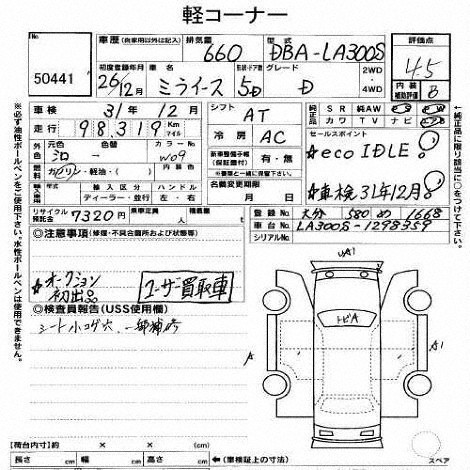 軽コーナー
出品番号
50441
車歴 (自家用以外は記入)
排気量
660
型式
DBA-LA300S
評価点
4.5
初度登録年月
26年12月
車名
ミライース
形状・ドア数
5D
グレード
D
2WD
4WD
内装
補助評価
B
車検 31年12月
シフト AT
純正品 SR 純AW
カワ TV ナビ
走行 98,319 Km
マイル
冷房 AC
セールスポイント
元色 色替 カラーNo
シロ - W09
内装色
☆eco IDLE
燃料 ガソリン・軽油・( )
新車整備手帳
(保証書付) 有・無
☆車検31年12月
輸入車 輸入区分 ハンドル
ディーラー・並行 左・右
名義変更期限
月 日
リサイクル預託金 7320円
乗車定員 人
積載量 kg
登録No. 大分 580 め 1668
車台No. LA300S-1298359
シリアルNo.
◎注意事項 (修復・不具合箇所および状態等)
☆オークション
初出品
ユーザー買取車
◎検査員報告(USS使用欄)
シート小コゲ穴、一部補修
A1
トビA
A
A1
スペア
【荷台内寸】約 × × 《車検証上の寸法》
長さ cm 幅 cm 高さ cm
※必ず油性ボールペンをご使用下さい。水性ボールペンは使用できません。